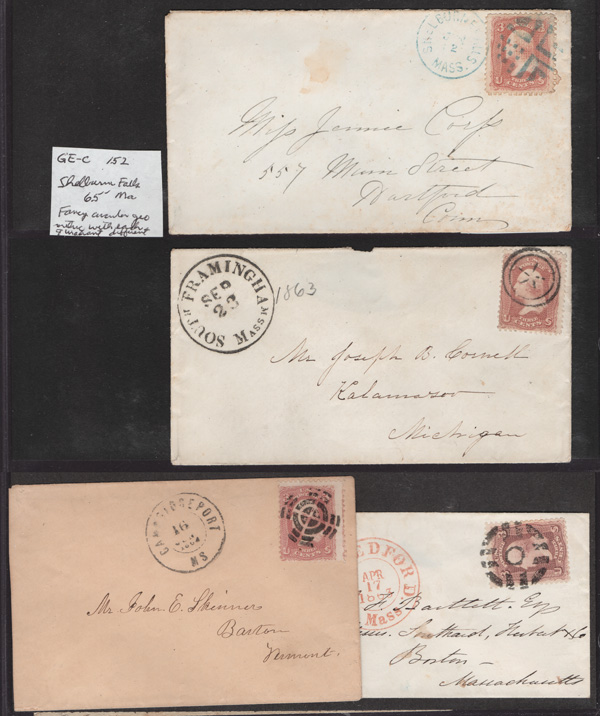 SHELBURNE
MASS.
3
Miss Jennie Corp
557 Main Street
Hartford
Conn
GE-C 152
Shelburne Falls
65 Ma
Fancy circular geo
SOUTH FRAMINGHAM
SEP
23
MASS
1863
U 3 CENTS S
Mr Joseph B. Cornell
Kalamazoo
Michigan
CAMBRIDGEPORT
16
MS
Mr John E. Skinner
Barton
Vermont.
BEDFORD
APR
17
Mass
F. Bartlett. Esq
Southard, Herbert & Co
Boston
Massachusetts